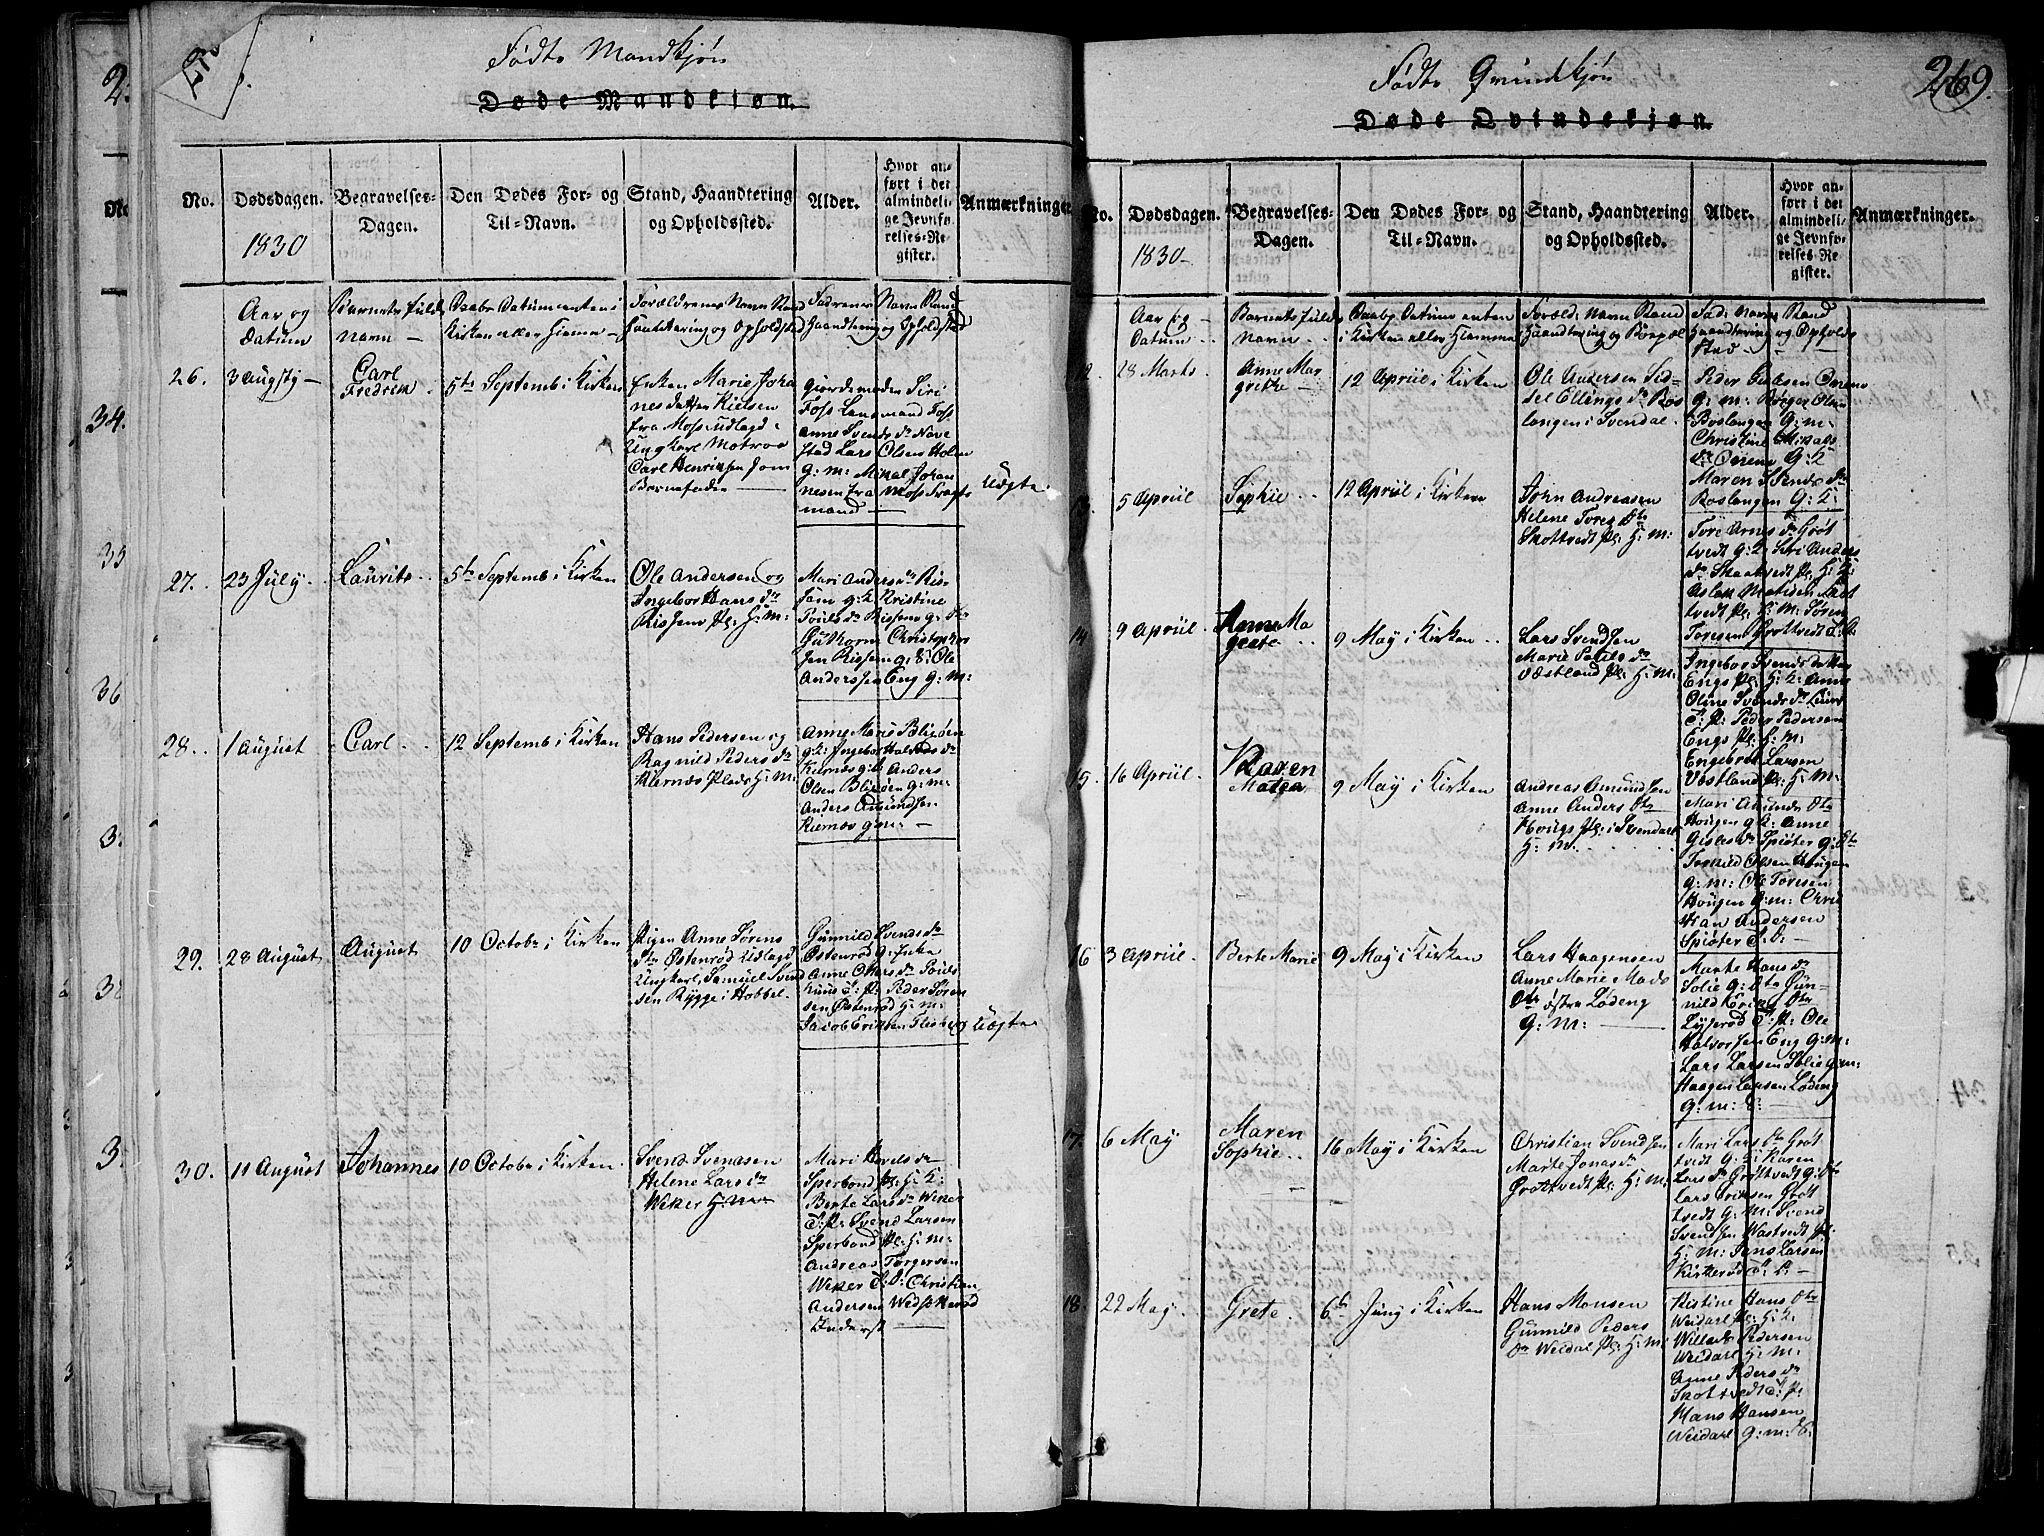 Födte Mandkjön
Døde Mandkiøn.
No.
Dødsdagen.
1830
Begravelses-
Dagen.
Den Dødes For- og
Til-Navn.
Stand, Haandtering
og Opholdssted.
Alder.
Hvor an-
ført i det
almindeli-
ge Jevnfø-
relses-Re-
gister.
Anmærkninger
Aar og
Datum
Barnets fulde
Navn
Daabs Datum enten i
Kirken eller Hiemme
Forældrenes Navn Stand
Haandtering og Opholdsted
Fadrenes Navn Stand
Haandtering og Opholdsted
26.
3 Augsty
Carl
Fredrik
5te Septemb i Kirken
Enken Marie Joha
nesdatter Nielsen
fra Moss udlagd
Ungkarl Matros
Carl Henriksen som
Barnefader
Giordemoder Siri
Foss Lensmand Foss
Anne Svends dr Nave
stad Lars Olsen Holen
G: M: Mikal Johan
nesen fra Moss
mand
Uægte
27.
23 July
Laurits
5te Septemb i Kirken
Ole Andersen og
Ingebor Hans dr
Rissem Pl: H: M:
Mari Anders dr Ris-
sem g: k Kristine
Pouls dr Rissem g: dtr
Guthorm Christopher
sen Rissem g: S: Ole
Anderssen Eng g: M:
28.
1 August
Carl
12 Septemb i Kirken
Hans Pedersen og
Ragnild Peders dr
Kiernæs Plads H: M:
Anne Marie Blixøen
g: k: Ingebor Halvors dr
Kiernæs g: k Anders
Olsen Blixøen g: m:
Anders Amundsen
Kiernæs g: m:
29.
28 August
August
10 Octobr i Kirken
Pigen Anne Sørens
dtr Østenrød Udlagd
Ungkarl Samuel Svend
sen Rygge i Hobbel
Gunnild Svends dr
Østenrød g: Enke
Anne Olars dr Pouls
hund T: P: Peder Søren
sen Østenrød H: M:
Jacob Eriksen
Uægte
30.
11 August
Johannes
10 Octobr i Kirken
Svend Svendsen
Helene Lars dr
Weker H: M:
Mari Hovels dr
Sperbond Pl: H: K:
Berte Lars dr Weker
T: P: Svend Larsen
Sperbond Pl: H: M:
Andreas Torgersen
Weker T: D: Christian
Andersen
Inderst
Födte Qvindekjön
269.
Døde Qvindekjøn.
No.
Dødsdagen.
1830
Begravelses-
Dagen.
Den Dødes For- og
Til-Navn.
Stand, Haandtering
og Opholdssted.
Alder.
Hvor an-
ført i det
almindeli-
ge Jevnfø-
relses-Re-
gister.
Anmærkninger.
Aar og
Datum
Barnets fulde
Navn
Daabs Datum enten
i Kirken eller Hiemme
Foræld: Navn Stand
Haandtering og Bopæl
Fad: Navn Stand
Haandtering og Opholds
sted
28 Marts
Anne Mar
grethe
12 Apriil i Kirken
Ole Andersen Sid-
sel Ellings dr Ros
langen i Svendal
Peder Gulbsen
G: m: Børger Olsen
Roslangen G: m:
Christine Mikals
dr G: k
Maren Svends dr
Roslangen G: k:
13.
5 Apriil
Sophie
12 Apriil i Kirken
John Andreasen
Helene Tores dtr
Skottvedt Pl: H: M:
Tore Arnes dr Grøt
tvedt g: k Siri Anders
dr Skottvedt Pl: H: K:
Aslak Matisen Løst
tvedt Pl: H: M: Søren
Toresen Grottvedt
14.
9 Apriil
Anne Ma
grete
9 May i Kirken
Lars Svendsen
Marie Pouls dr
Væstland Pl: H: M:
Ingebor Svends datter
Engs Pl: H: k: Anne
Oline Svends dr
T: P: Peder Pedersen
Engs Pl: H: M:
Engebret Larsen
Væstland Pl: H: M:
15.
16 Apriil
Karen
Matea
9 May i Kirken
Andreas Amundsen
Anne Anders dtr
Hougs Pl: i Svendal
H: M:
Mari Amunds dtr
Hougen g: k: Anne
Gisles dr Spiøter G: dtr
Torkild Olsen Hougen
g: m: Ole Toresen
Hougen g: m: Chris
tian Andersen
Spiøter S: D:
16
3 Apriil
Berte Marie
9 May i Kirken
Lars Haagensen
Anne Marie Mads
dtr østre Lødeng
G: M:
Marte Hans dr
Solie G: dtr Gun-
nild Karine dtr
Lyserød T: P: Ole
Halvorsen Eng G: M:
Lars Larsen Solie g: m:
Haagen Larsen Lødeng
G: m: S:
17.
6 May
Maren
Sophie
16 May i Kirken
Christian Svendsen
Marte Jonas dr
Grottvedt Pl: H: M:
Mari Lars dtr Grøt
tvedt G: k: Karen
Lars dr Grøttvedt G: dtr
Lars Eriksen Grøt
tvedt G: M: Svend
Svendsen Wastvedt Pl:
H: M: Jens Larsen
Kirkerød
18.
22 May
Grete
6te Juny i Kirken
Hans Monsen
Gunnild Peders
dr Weidal Pl: H: M:
Kistine Hans dtr
Weidal Pl: H: k:
Willads Pedersen
Weidarl H: M:
Anne Peders dr
Skottvedt T: P:
Mons Hansen
Weidarl G: M: S: